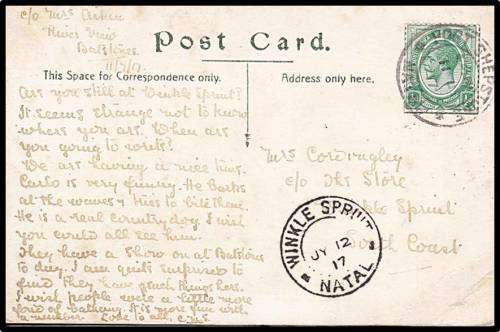 c/o Mrs Aiken
River View
11/7/17
Post Card.
This Space for Correspondence only.
Address only here.
Are you still at Winkle Spruit?
It seems strange not to know
where you are. When are
you going to write?
We are having a nice time.
Carlo is very funny. He Barks
at the waves & tries to bite them.
He is a real country dog. I wish
you could all see him.
They have a Show on at
to day. I am quite surprised to
find They have such things here.
I wish people were a little more
fond of bathing. It is more fun with
a number. Love to all,
Mrs Cordingley
c/o The Store
Winkle Spruit
South Coast
WINKLE SPRUIT
JY 12
17
NATAL